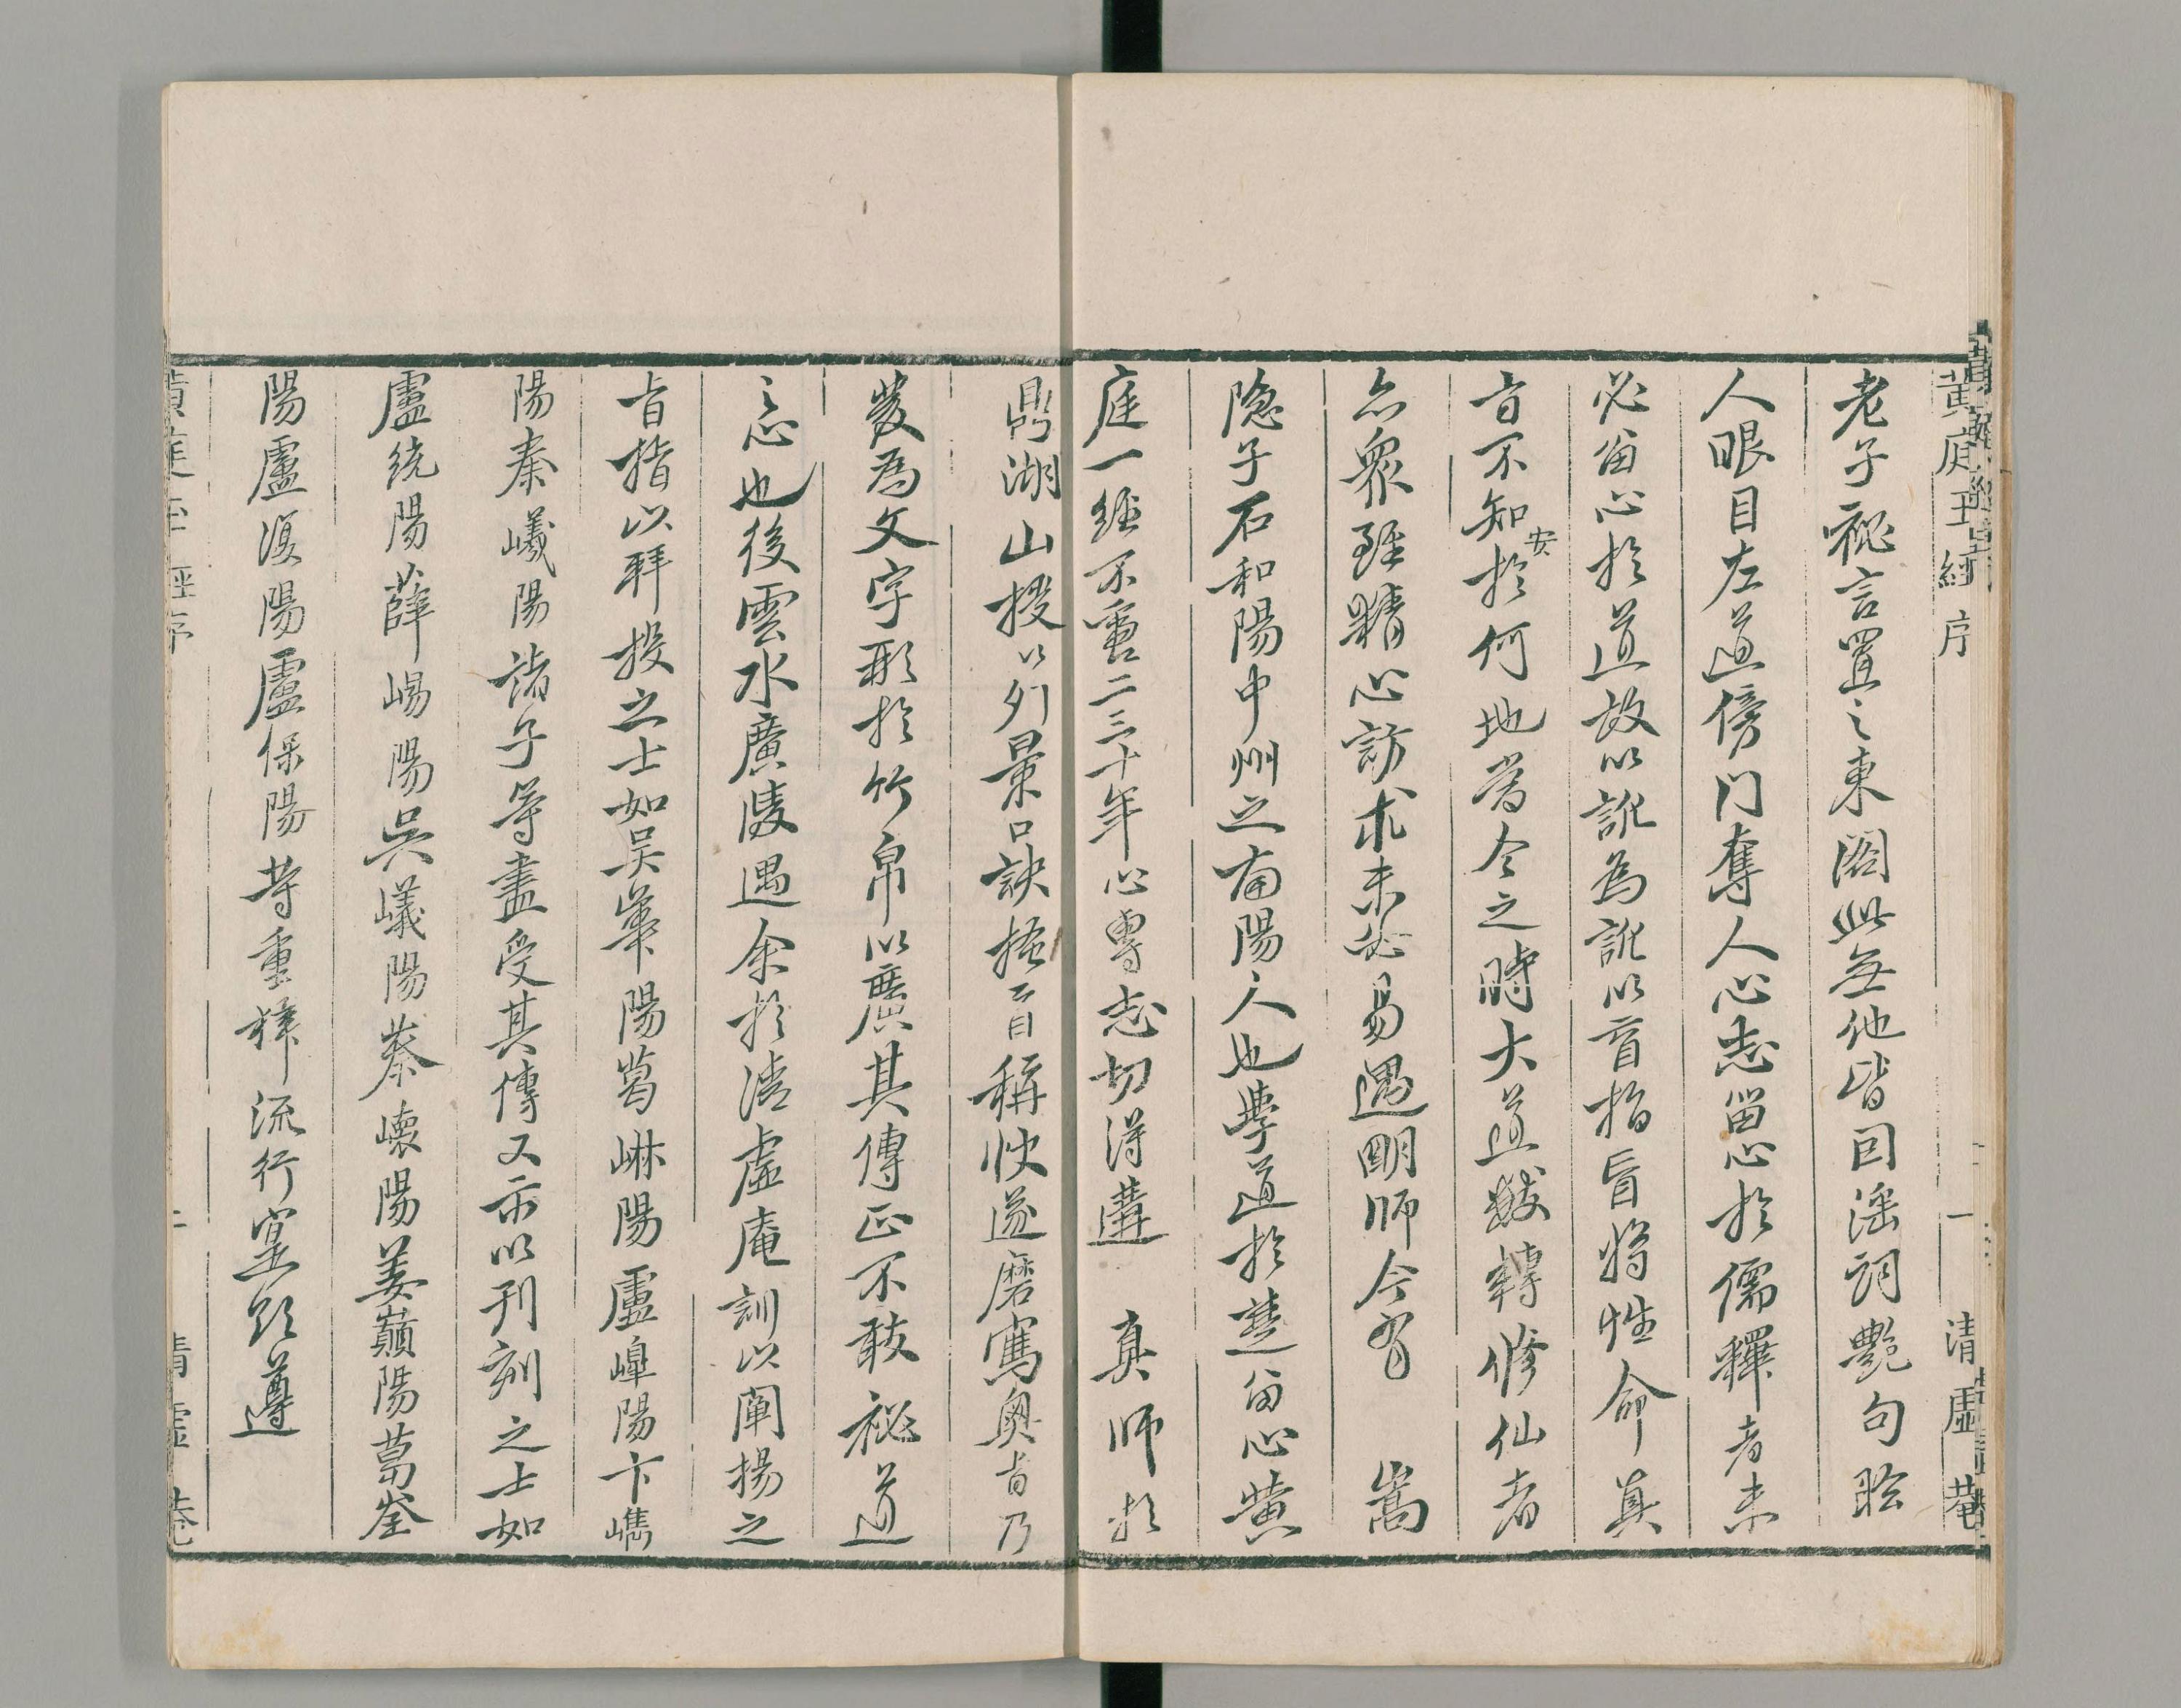 黃庭玉經序 一 清虛菴
老子祕言置之東閣此無他皆因滛詞艷句昡
人眼目左道傍門奪人心志留心於儒釋者未
必留心於道故以訛為訛以盲指盲將性命真
音不知安於何地當今之時大道翻轉修仙者
亦衆雖精心訪求未必易遇明師今有 嵩
隐子石和陽中州之南陽人也學道於楚留心黃
庭一經不啻二三十年心專志切得遘 真師於
鼎湖山授以列景口訣搔首稱快遂磨寫奥旨乃
發為文字形於竹帛以廣其傳正不敢祕道
之忘也後雲水廣陵遇余於清虛庵訓以闡揚之
旨指以拜投之士如吴崋陽葛崊陽盧崲陽卞㠍
陽秦㠖陽諸子等盡受其傳又示以刊刻之士如
盧統陽薛崵陽吳㠖陽蔡㠢陽姜巔陽葛峑
陽盧澓陽盧保陽等重梓流行室欵遵
黃庭玉經序 二 清虛菴